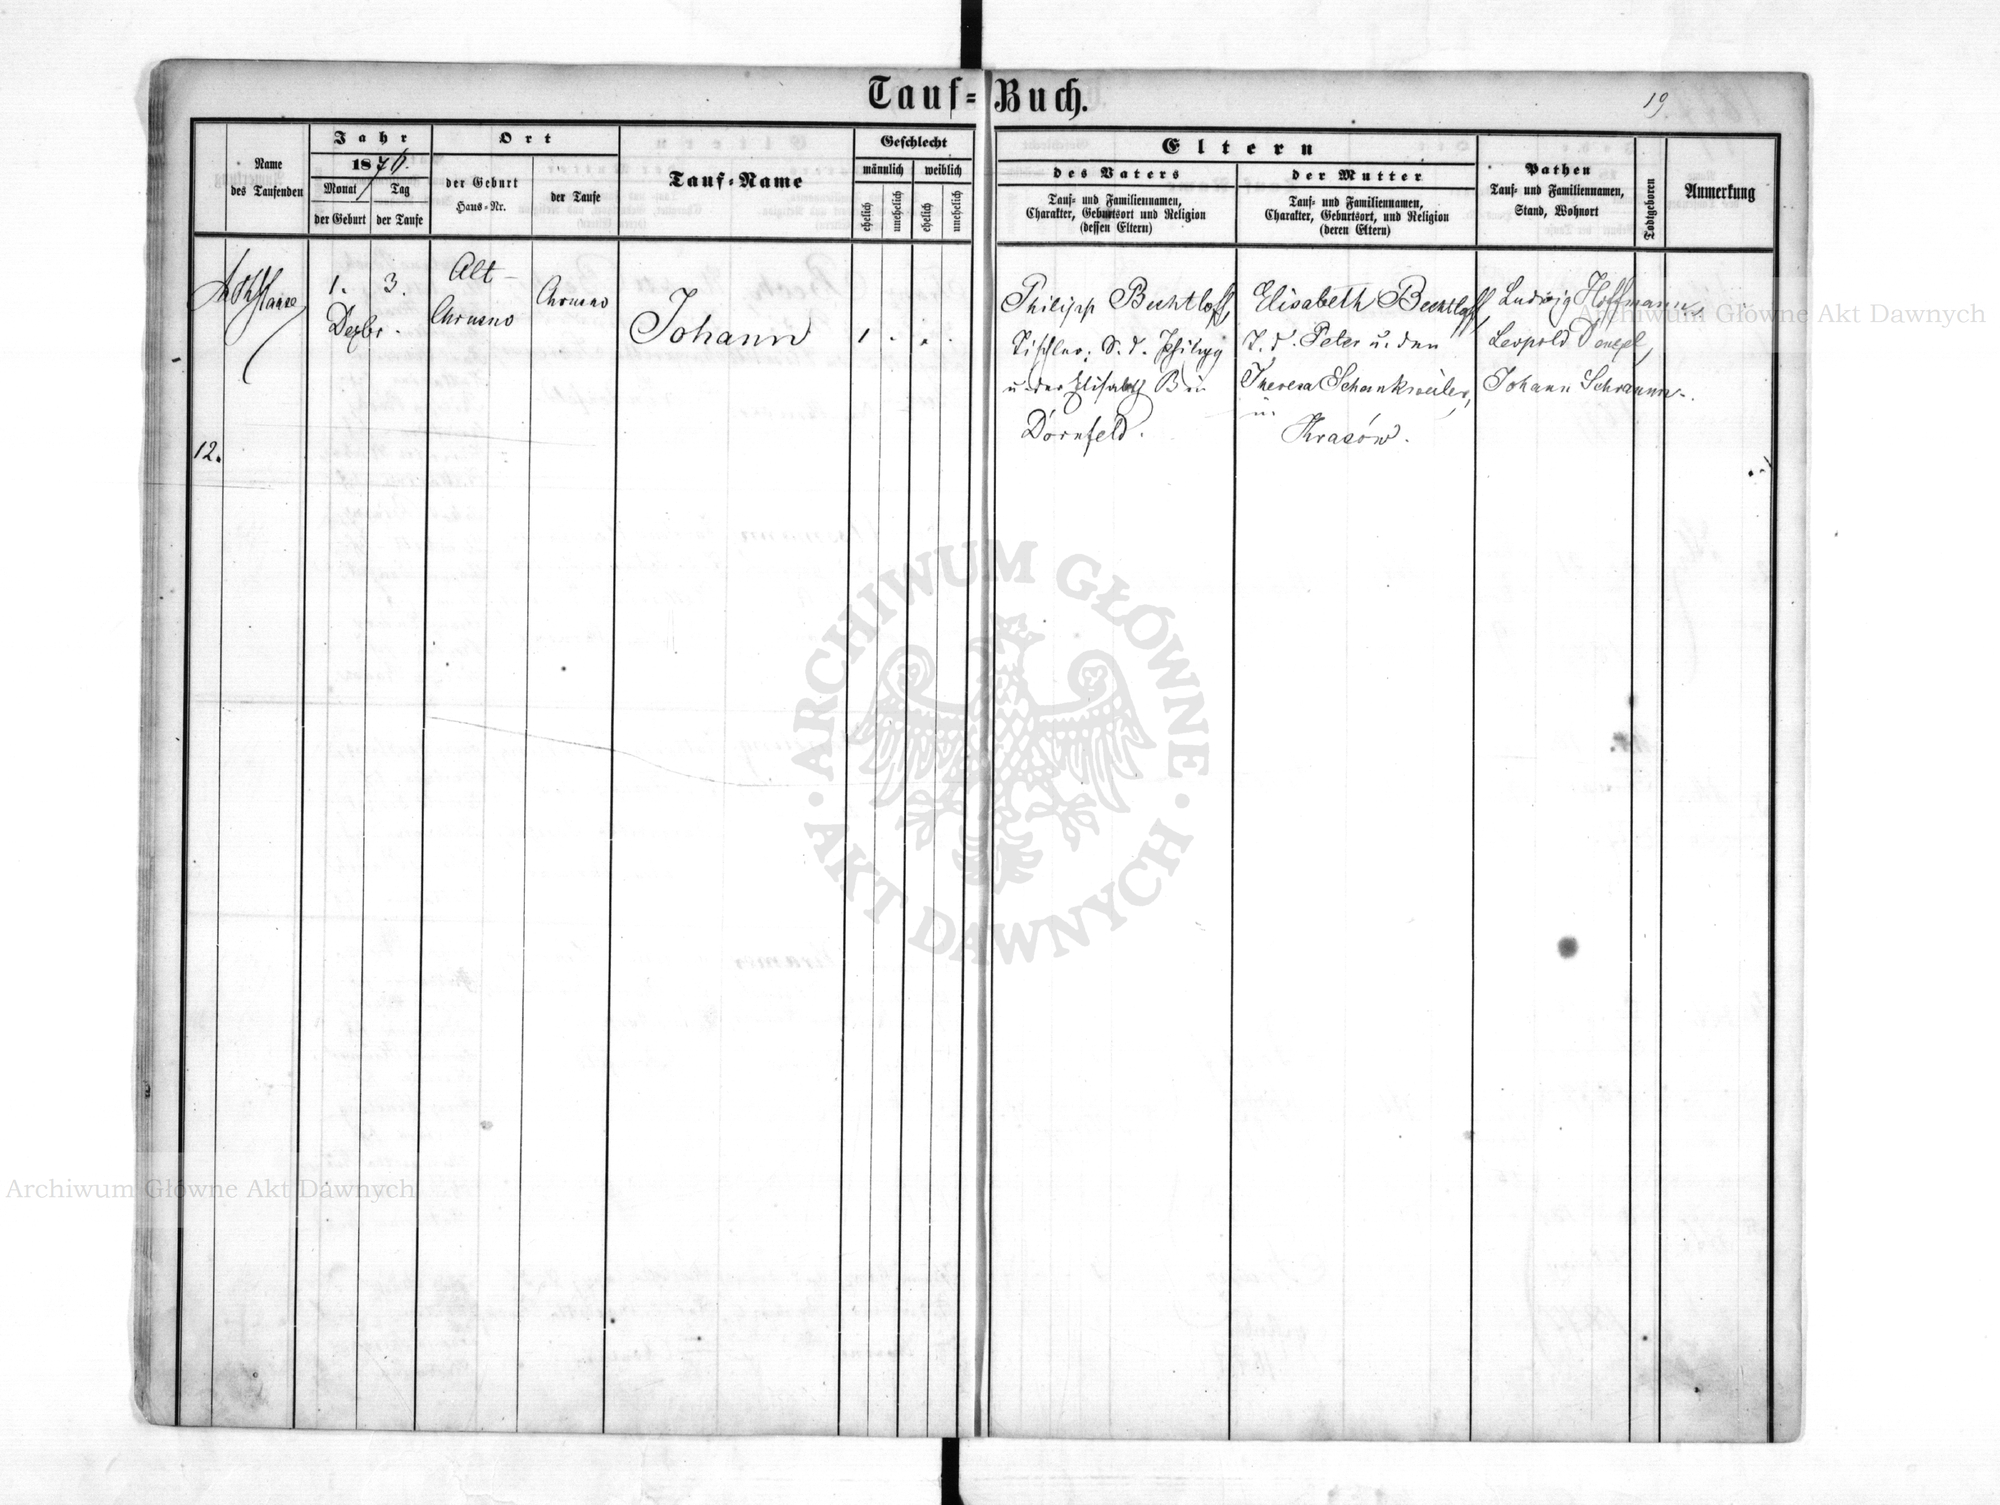 Tauf-Buch.
19
Name
des Taufenden
Jahr
1876.
Monat
der Geburt
Tag
der Taufe
Ort
der Geburt
Haus-Nr.
der Taufe
Tauf-Name
Geschlecht
männlich
weiblich
ehelich
unehelich
ehelich
unehelich
Eltern
des Vaters
Tauf- und Familiennamen,
Charakter, Geburtsort und Religion
(dessen Eltern)
der Mutter
Tauf- und Familiennamen,
Charakter, Geburtsort, und Religion
(deren Eltern)
Pathen
Tauf- und Familiennamen,
Stand, Wohnort
Todtgeboren
Anmerkung
12.
1.
Dezbr.
3.
Alt
Chrusno
Chrusno
Johann
1 . . .
Philipp Bechtloff,
Tischler; S. d. Philipp
u. der Elisabeth
Dornfeld.
Elisabeth Bechtloff,
T. d. Peter u. den
Theresa Schankweiler,
in
Krasów.
Ludwig Hoffmann,
Leopold
Johann Schramm.
Archiwum Główne Akt Dawnych
ARCHIWUM GŁÓWNE
AKT DAWNYCH
Archiwum Główne Akt Dawnych